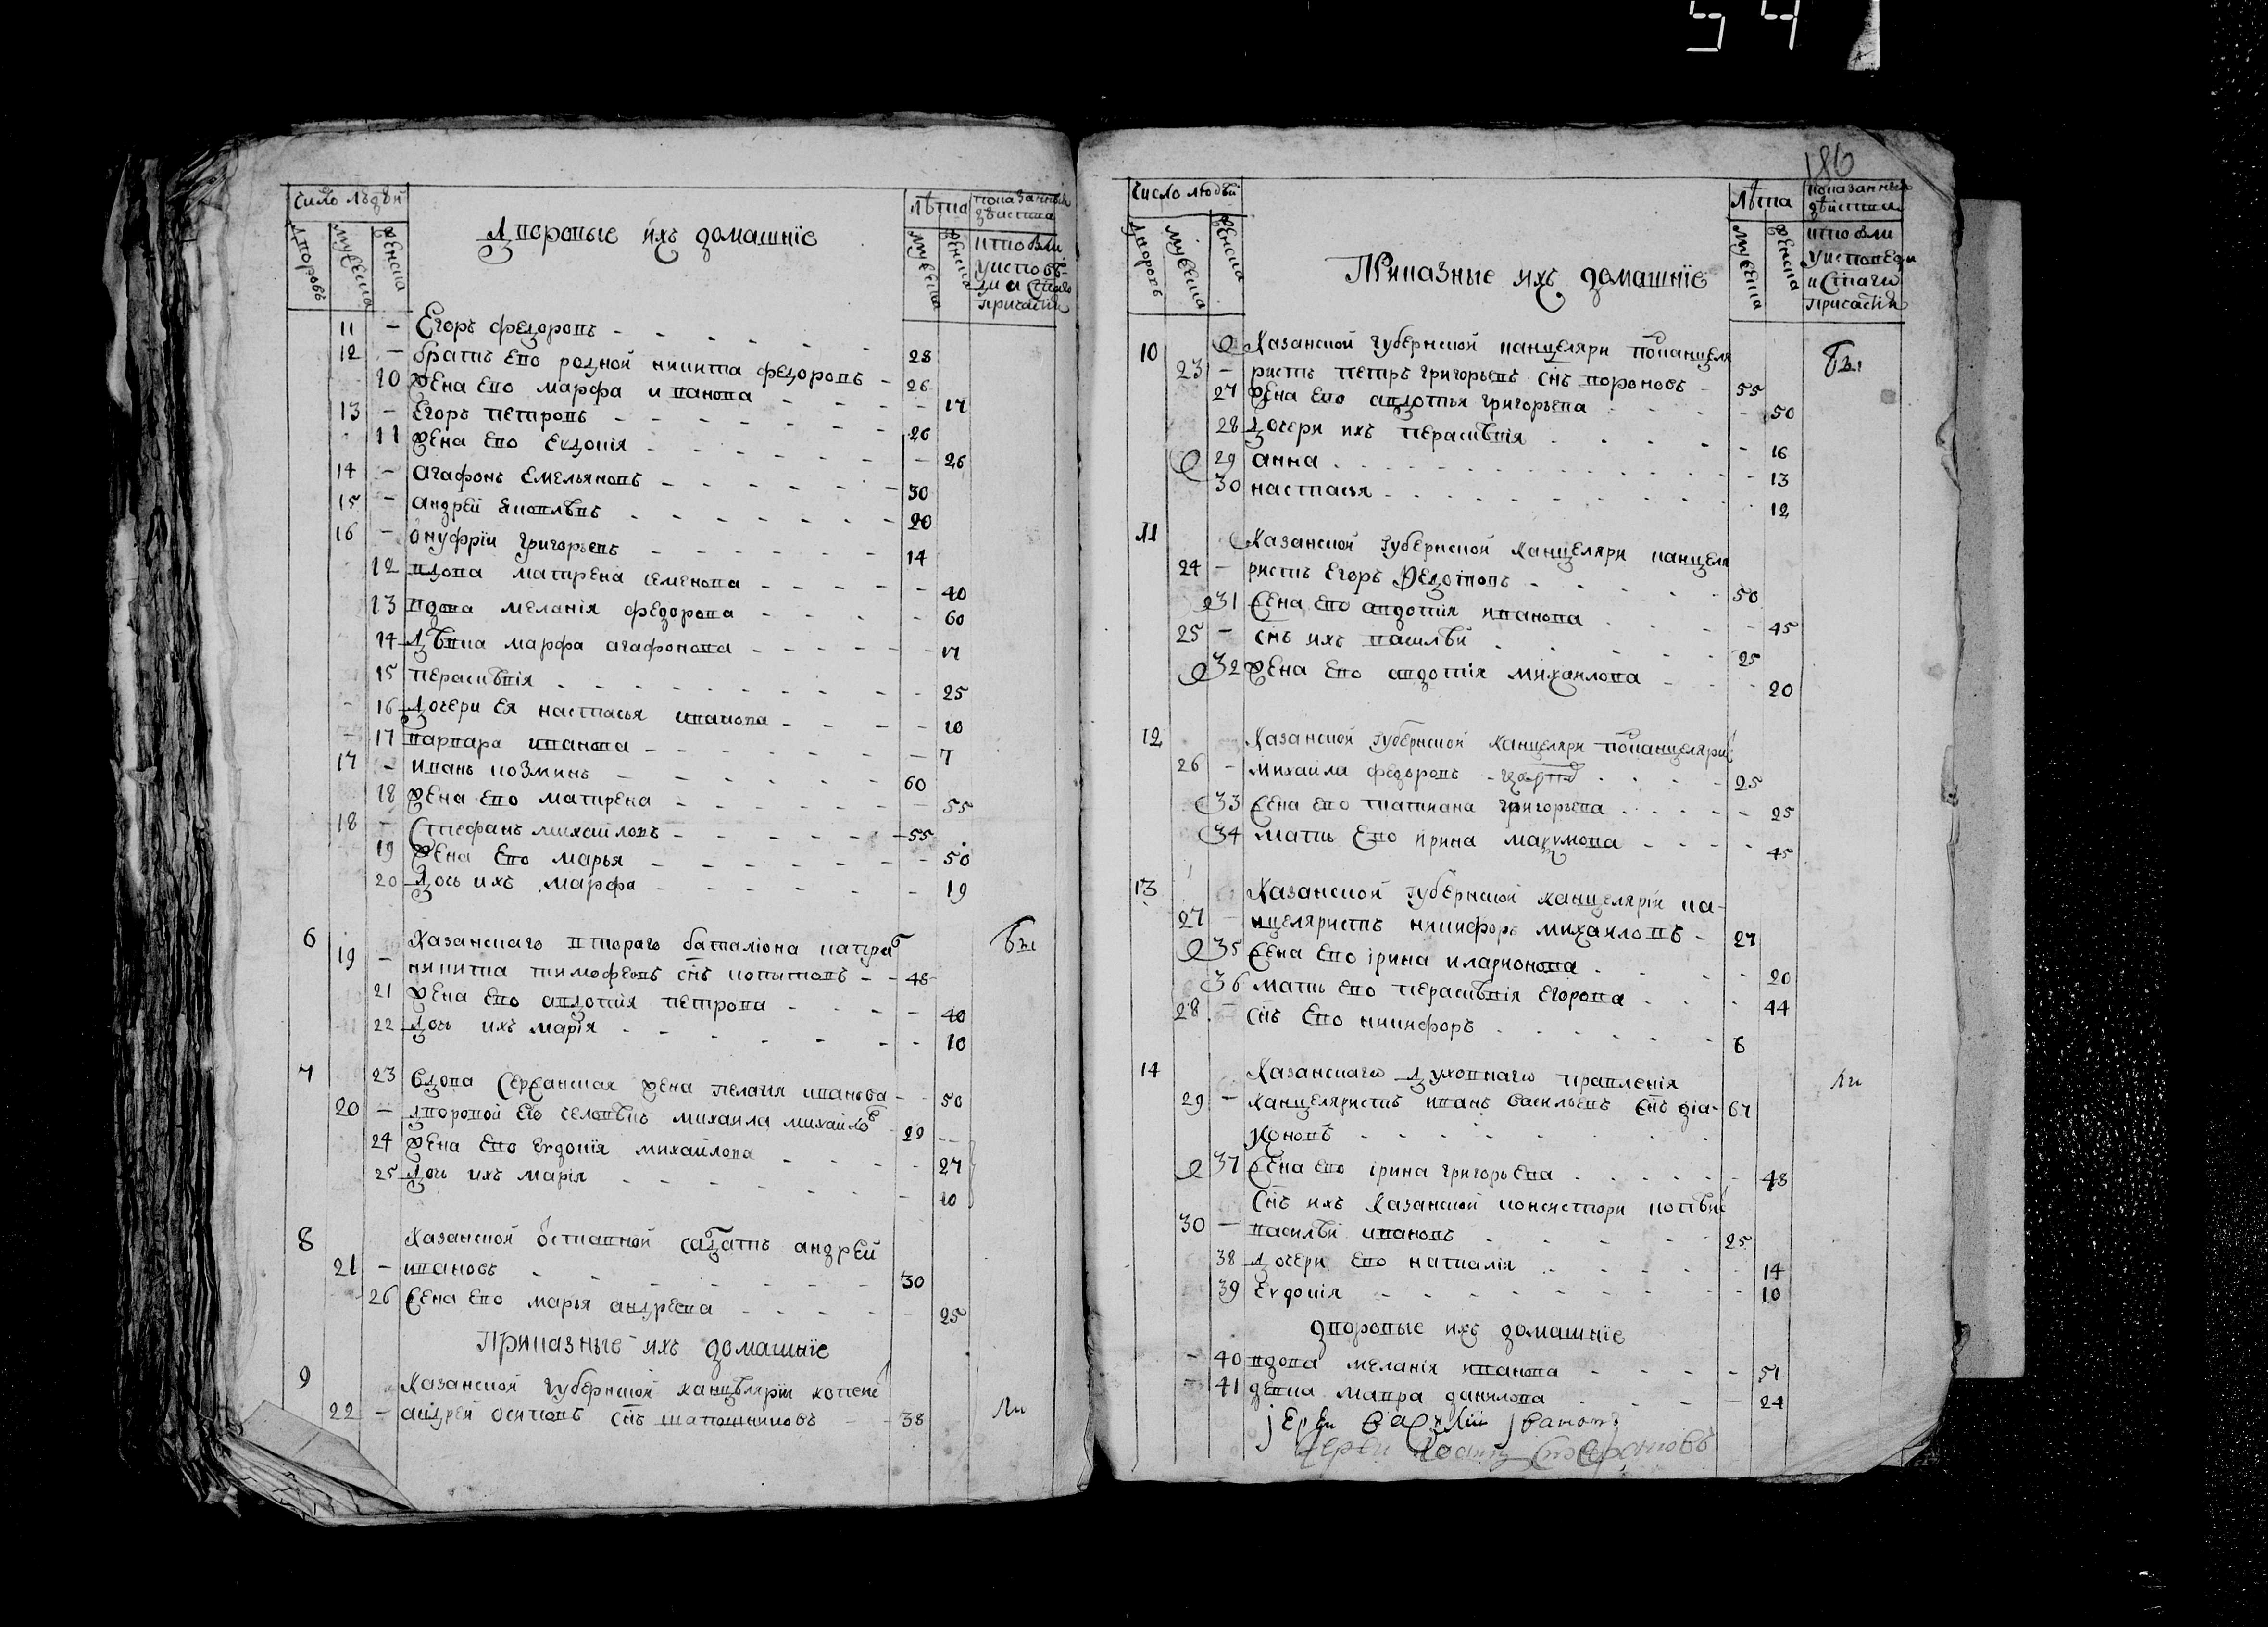 541
число людей
дворовъ
мужеска
женска
Дворовые ихъ домашнїе
лѣта
мужеска
женска
показаннїя
дѣиства
кто былъ
у исповѣ-
ди и с҃таго
причастїя
11 - Егоръ федоровъ - 28
12 - братъ ево родной никита федоровъ - 26
10 жена ево марфа ивановa - 17
13 - Егоръ петровъ - 26
11 жена ево Евдокїя - 26
14 - агафонъ емельяновъ - 30
15 - андрей яковлѣвъ - 20
16 - онуфрїи григорьевъ - 14
12 вдова матрена семенова - 40
13 вдова меланїя федорова - 60
14 дѣвка марфа агафонова - 17
15 парасковїя - 25
16 дочери ея настасья иванова - 10
17 варвара иванова - 7
17 - иванъ козминъ - 60
18 жена ево матрена - 55
18 - стефанъ михайловъ - 55
19 жена ево марья - 50
20 дочь ихъ марфа - 19
6 Казанскаго втораго баталїона капра бы
19 - никита тимофеевъ сн҃ъ копытовъ - 48
21 жена ево авдотїя петрова - 40
22 дочь ихъ марїя - 10
7 23 вдова сержанская жена пелагїя иванова - 50
20 - дворовой ею человѣкъ михаила михайловъ 29
24 жена ево евдокїя михайлова - 27
25 дочь ихъ марїя - 10
8 Казанской отставной салдатъ андрей
21 - ивановъ - 30
26 жена ево марья андреева - 25
Приказные ихъ домашнїе
9 Казанской губернской канцѣлярїи копеис
22 - андрей осиповъ сн҃ъ шапошниковъ - 38
186
число людѣй
дворовъ
мужеска
женска
Приказные ихъ домашнїе
лѣта
мужеска
женска
показаннїя
дѣиства
кто былъ
у исповѣди
и с҃таго
причастїя
10 Казанской губернской канцеляри подканцеля бы
23 - ристъ петръ григорьевъ сн҃ъ вороновъ - 55
27 жена ево авдотья григорьева - 50
28 дочери ихъ парасковїя - 16
29 анна - 13
30 настасья - 12
11 Казанской губернской канцеляри канцеля
24 - ристъ Егоръ Федотовъ - 50
31 жена ево авдотїя иванова - 45
25 - сн҃ъ ихъ василѣй - 25
32 жена ево авдотїя михаилова - 20
12 Казанской губернской канцеляри подканцелярис
26 - михаила федоровъ - 25
33 жена ево татиана григорьева - 25
34 мать ево ирина макѵмова - 45
13 Казанской губернской канцелярїи ка-
27 - нцеляристъ никифоръ михаиловъ - 27
35 жена ево ірина иларионова - 20
36 мать ево парасковїя егорова - 44
28 - сн҃ъ ево никифоръ - 6
14 Казанскаго духовнаго правленїя
29 - канцеляристъ иванъ васильевъ сн҃ъ діа- 67
коновъ -
37 жена ево ірина григорьева - 48
сн҃ъ ихъ казанской консистори копѣис
30 - василѣй ивановъ - 25
38 дочери ево наталїя - 14
39 евдокїя - 10
дворовые ихъ домашнїе
- 40 вдова меланїя иванова - 51
- 41 девка мавра данилова - 24
іереи василїи іванов
иереи Иоаннъ Стефановъ